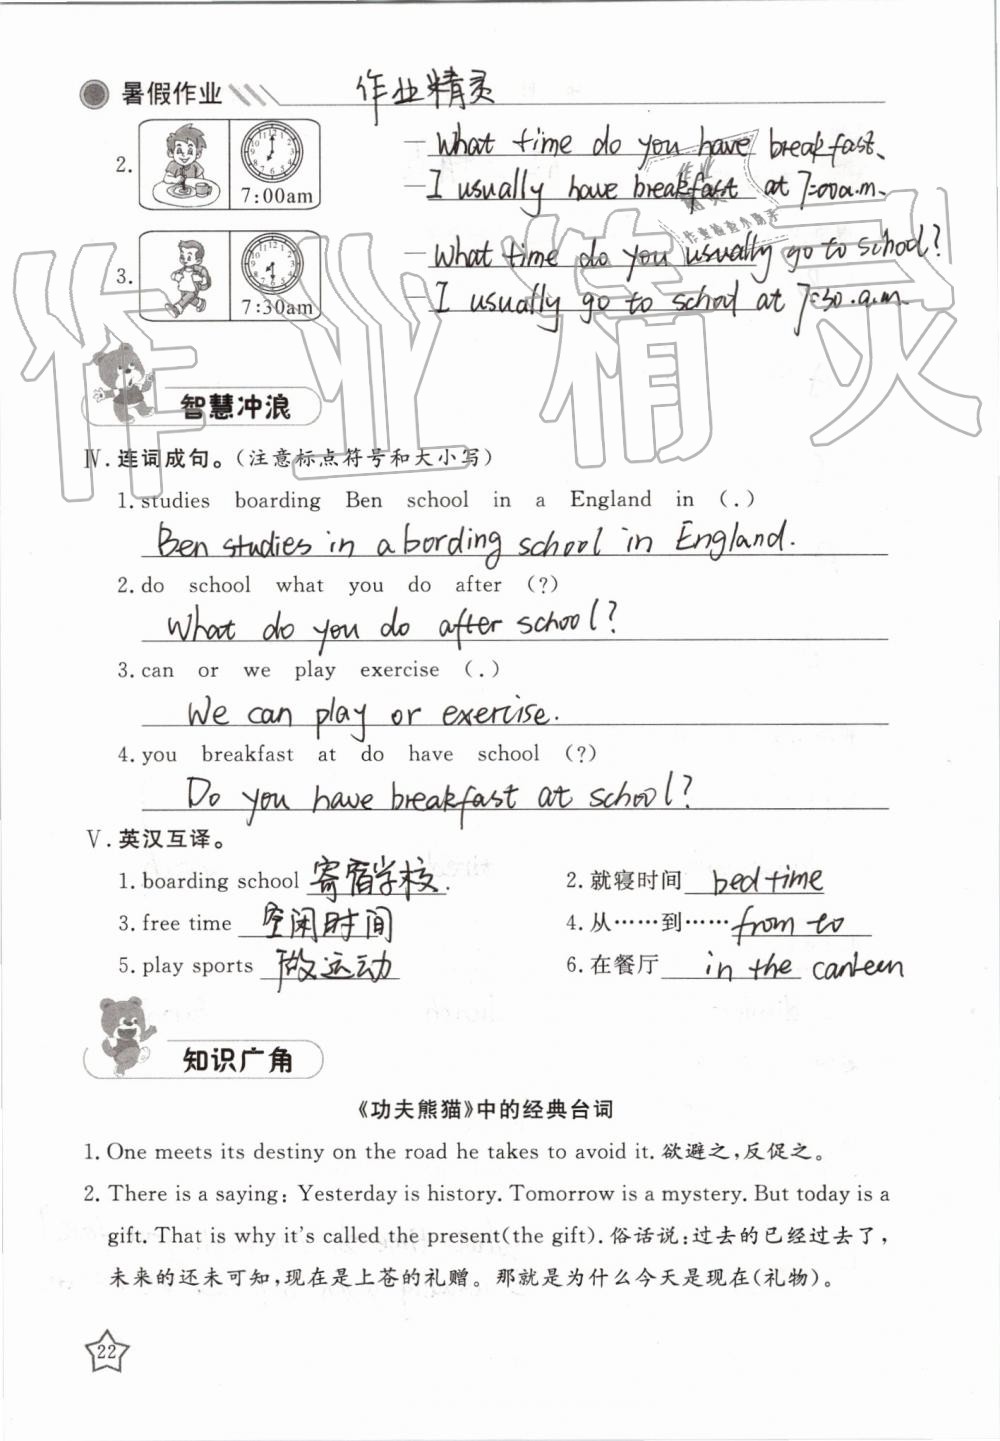 暑假作业 作业精灵
2. 7:00am
— What time do you have breakfast.
— I usually have breakfast at 7:00a.m.
3. 7:30am
— What time do you usually go to school?
— I usually go to school at 7:30.a.m.
作业精灵
智慧冲浪
Ⅳ.连词成句。(注意标点符号和大小写)
1. studies boarding Ben school in a England in (.)
Ben studies in a bording school in England.
2. do school what you do after (?)
What do you do after school?
3. can or we play exercise (.)
We can play or exercise.
4. you breakfast at do have school (?)
Do you have breakfast at school?
Ⅴ.英汉互译。
1. boarding school 寄宿学校. 2. 就寝时间 bed time
3. free time 空闲时间 4. 从……到…… from to
5. play sports 做运动 6. 在餐厅 in the canteen
知识广角
《功夫熊猫》中的经典台词
1. One meets its destiny on the road he takes to avoid it. 欲避之,反促之。
2. There is a saying: Yesterday is history. Tomorrow is a mystery. But today is a
gift. That is why it's called the present(the gift). 俗话说:过去的已经过去了,
未来的还未可知,现在是上苍的礼赠。那就是为什么今天是现在(礼物)。
22